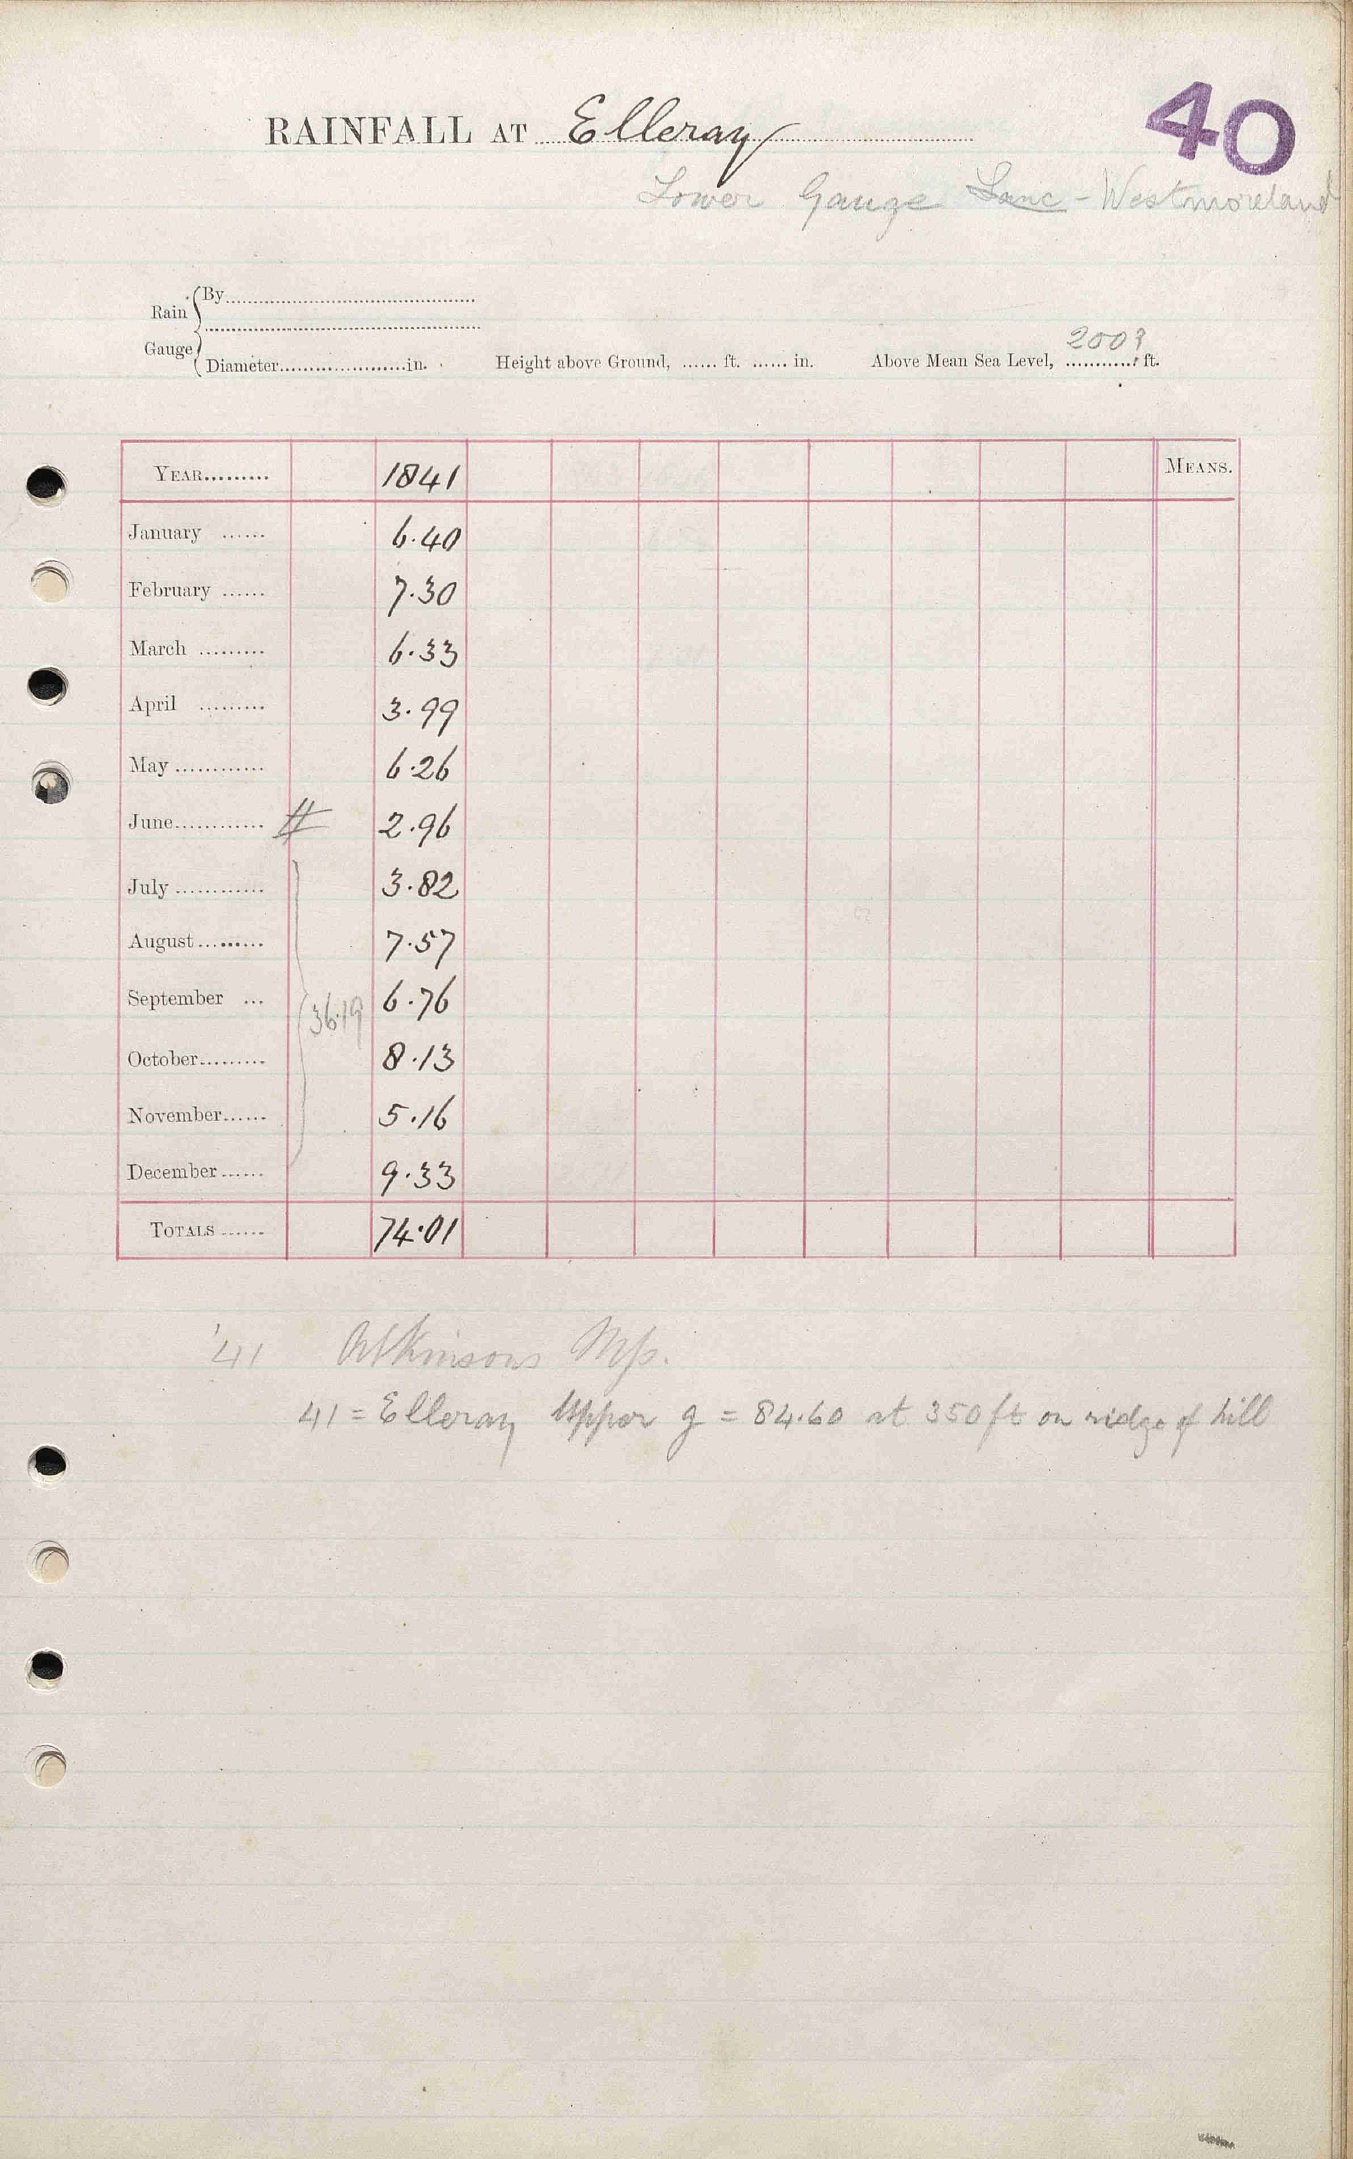 40
RAINFALL AT Elleray
Lower Gauge Lanc - Westmoreland
Rain Gauge { By
Diameter in. Height above Ground, ft. in. Above Mean Sea Level, 200? ft.
YEAR 1841 MEANS.
January 6.40
February 7.30
March 6.33
April 3.99
May 6.26
June # 2.96
July 3.82
August 7.57
September 6.76
36.19
October 8.13
November 5.16
December 9.33
TOTALS 74.01
'41 Atkinsons
41 = Elleray Upper g = 84.60 at 350 ft on ridge of hill